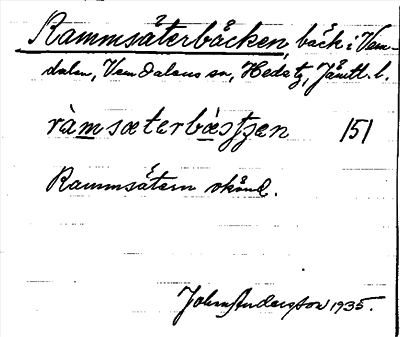 Rammsäterbäcken, bäck i Vem-
dalen, Vemdalens sn, Hede tg, Jämtl. l.
ràmsæterbæ̀stʃen 151
Rammsätern okänd.
John Anderson 1935.